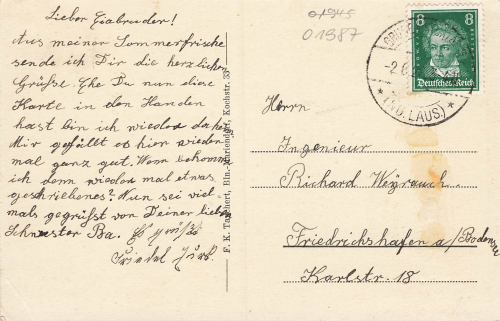 Lieber Gabruder!
Aus meiner Sommerfrische
sende ich Dir die herzlichen
Grüße. Ehe Du nun diese
Karte in den Händen
hast bin ich wieder daheim
Mir gefällt es hier wieder
mal ganz gut. Wann bekomme
ich denn wieder mal etwas
geschriebenes? Nun sei viel-
mals gegrüßt von Deiner lieben
Schwester Ba. Es grüßt
Friedel
F. K. Bln.-Mariendorf, Kochstr. 33
01945
01987
8 8
Deutsches Reich
-2.6.
(ND. LAUS.)
Herrn
Ingenieur
Richard Weyrauch.
Friedrichshafen a/Bodensee
Karlstr. 18